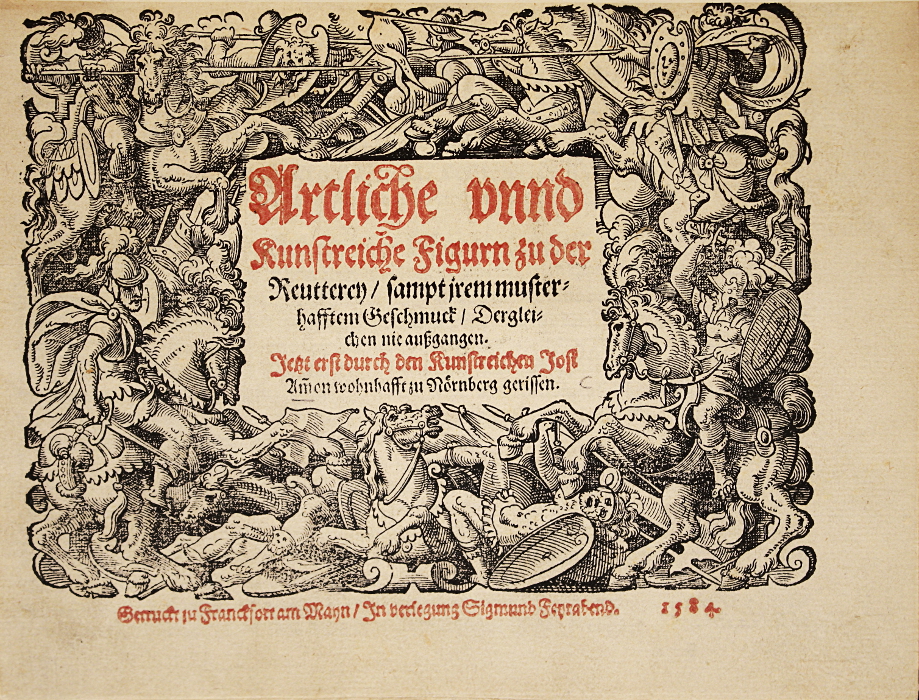 Artliche vnnd
Kunstreiche Figurn zu der
Reutterey / sampt jrem muster-
hafftem Geschmuck / Derglei-
chen nie außgangen.
Jetzt erst durch den Kunstreichen Jost
Am̃en wohnhafft zu Nörnberg gerissen.
Getruckt zu Franckfort am Mayn / In verlegung Sigmund Feyrabend. 1584